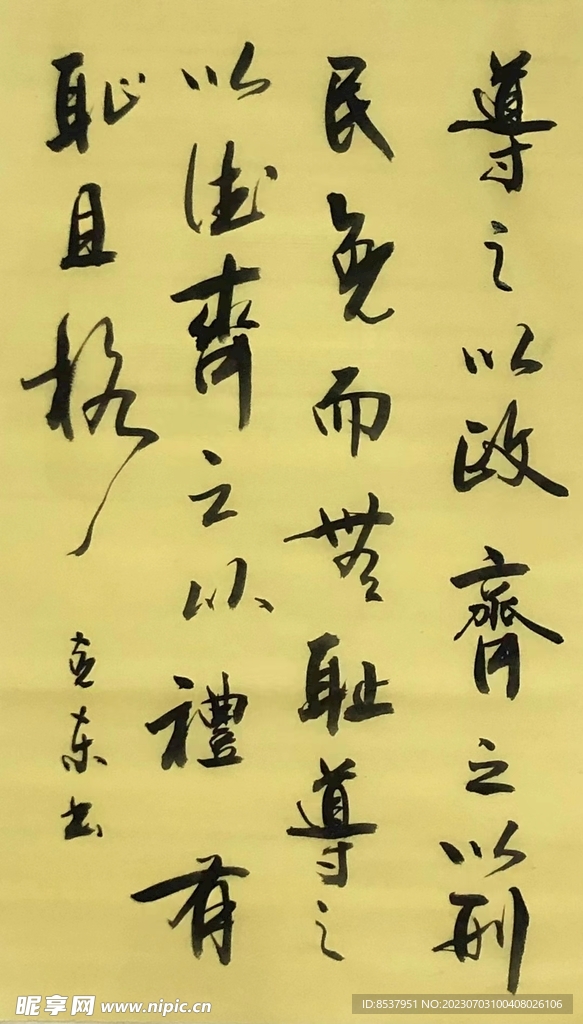 導之以政齊之以刑
民免而無耻導之
以德齊之以禮有
耻且格
克东书
昵享网 www.nipic.cn
ID:8537951 NO:20230703100408026106